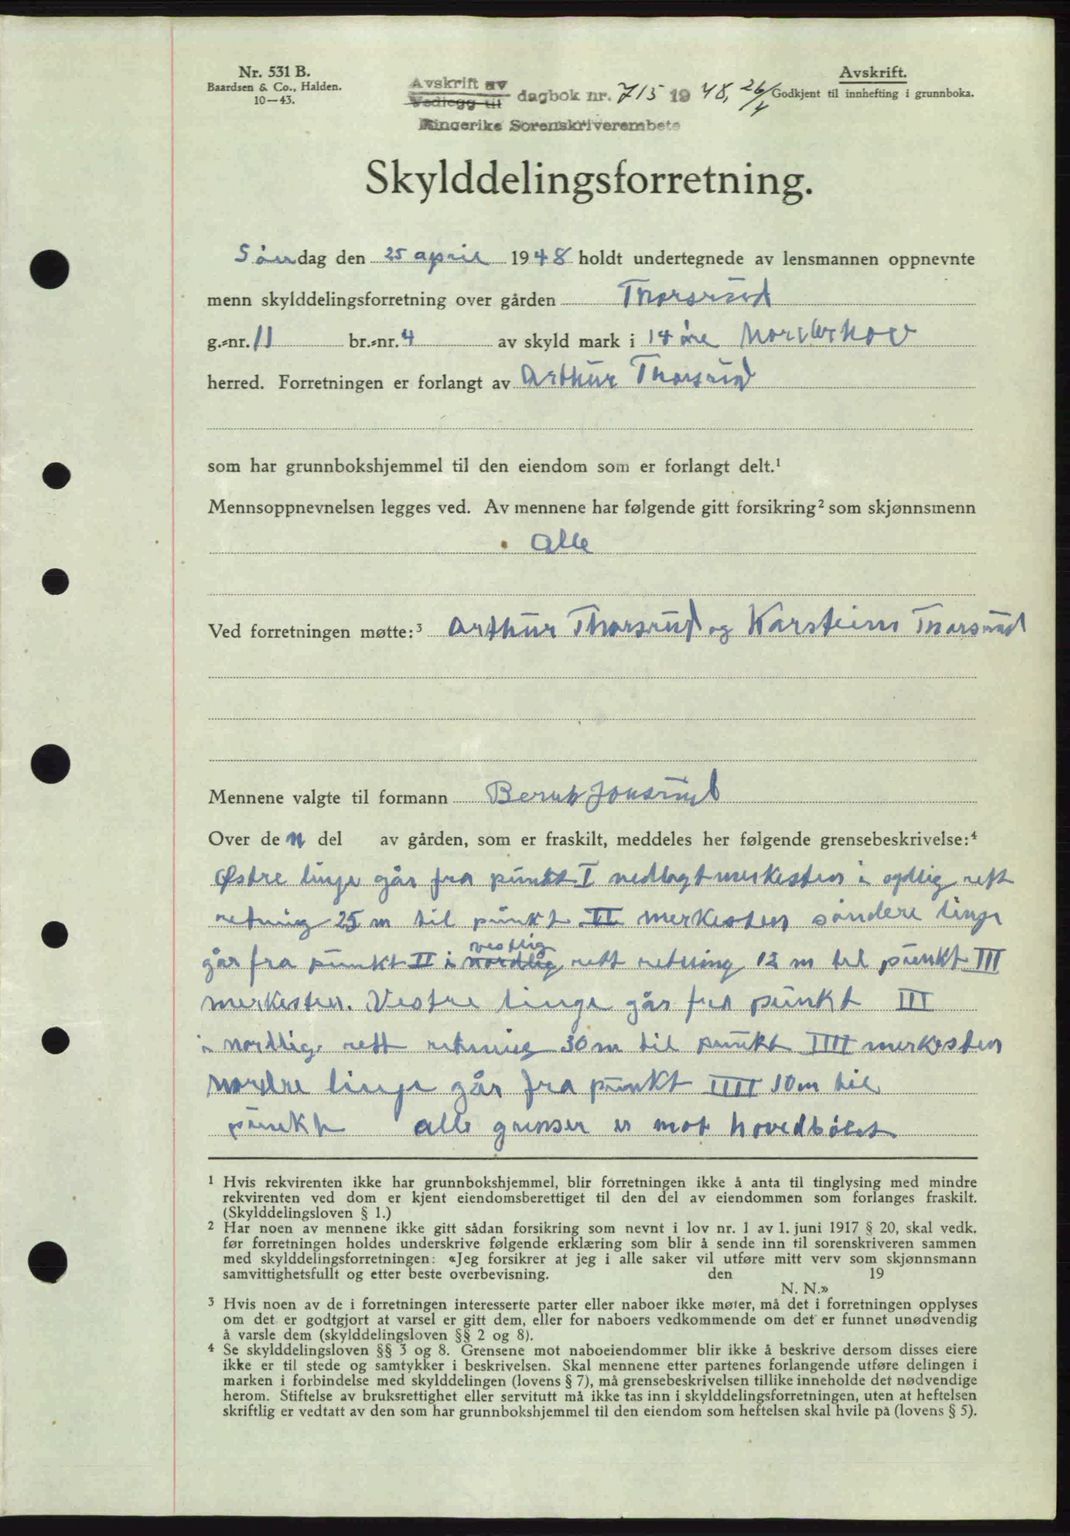 Nr. 531 B.
Baardsen & Co., Halden.
10—43.
Avskrift av
Vedlegg til dagbok nr. 715 1948, 26/4
Ringerike Sorenskriverembete
Avskrift.
Godkjent til innhefting i grunnboka.
Skylddelingsforretning.
Søndag den 25 april 1948 holdt undertegnede av lensmannen oppnevnte
menn skylddelingsforretning over gården Thorsrud
g.-nr. 11 br.-nr. 4 av skyld mark i 14 øre Norderhov
herred. Forretningen er forlangt av Arthur Thorsrud
som har grunnbokshjemmel til den eiendom som er forlangt delt.¹
Mennsoppnevnelsen legges ved. Av mennene har følgende gitt forsikring² som skjønnsmenn
Alle
Ved forretningen møtte:³ Arthur Thorsrud og Karstein Thorsrud
Mennene valgte til formann Bernt Jonsrud
Over den del av gården, som er fraskilt, meddeles her følgende grensebeskrivelse:⁴
Østre linje går fra punkt I nedlagt merkesten i sydlig rett
retning 25 m til punkt II merkesten søndere linje
går fra punkt II i nordlig vestlig rett retning 12 m til punkt III
merkesten. Vestre linje går fra punkt III
i nordlig rett retning 30 m til punkt IIII merkesten
Nordre linje går fra punkt IIII 10 m til
punkt alle grenser er mot hovedbølet
¹ Hvis rekvirenten ikke har grunnbokshjemmel, blir forretningen ikke å anta til tinglysing med mindre
rekvirenten ved dom er kjent eiendomsberettiget til den del av eiendommen som forlanges fraskilt.
(Skylddelingsloven § 1.)
² Har noen av mennene ikke gitt sådan forsikring som nevnt i lov nr. 1 av 1. juni 1917 § 20, skal vedk.
før forretningen holdes underskrive følgende erklæring som blir å sende inn til sorenskriveren sammen
med skylddelingsforretningen: «Jeg forsikrer at jeg i alle saker vil utføre mitt verv som skjønnsmann
samvittighetsfullt og etter beste overbevisning. den 19
N. N.»
³ Hvis noen av de i forretningen interesserte parter eller naboer ikke møter, må det i forretningen opplyses
om det er godtgjort at varsel er gitt dem, eller for naboers vedkommende om det er funnet unødvendig
å varsle dem (skylddelingsloven §§ 2 og 8).
⁴ Se skylddelingsloven §§ 3 og 8. Grensene mot naboeiendommer blir ikke å beskrive dersom disses eiere
ikke er til stede og samtykker i beskrivelsen. Skal mennene etter partenes forlangende utføre delingen i
marken i forbindelse med skylddelingen (lovens § 7), må grensebeskrivelsen tillike inneholde det nødvendige
herom. Stiftelse av bruksrettighet eller servitutt må ikke tas inn i skylddelingsforretningen, uten at heftelsen
skriftlig er vedtatt av den som har grunnbokshjemmel til den eiendom som heftelsen skal hvile på (lovens § 5).